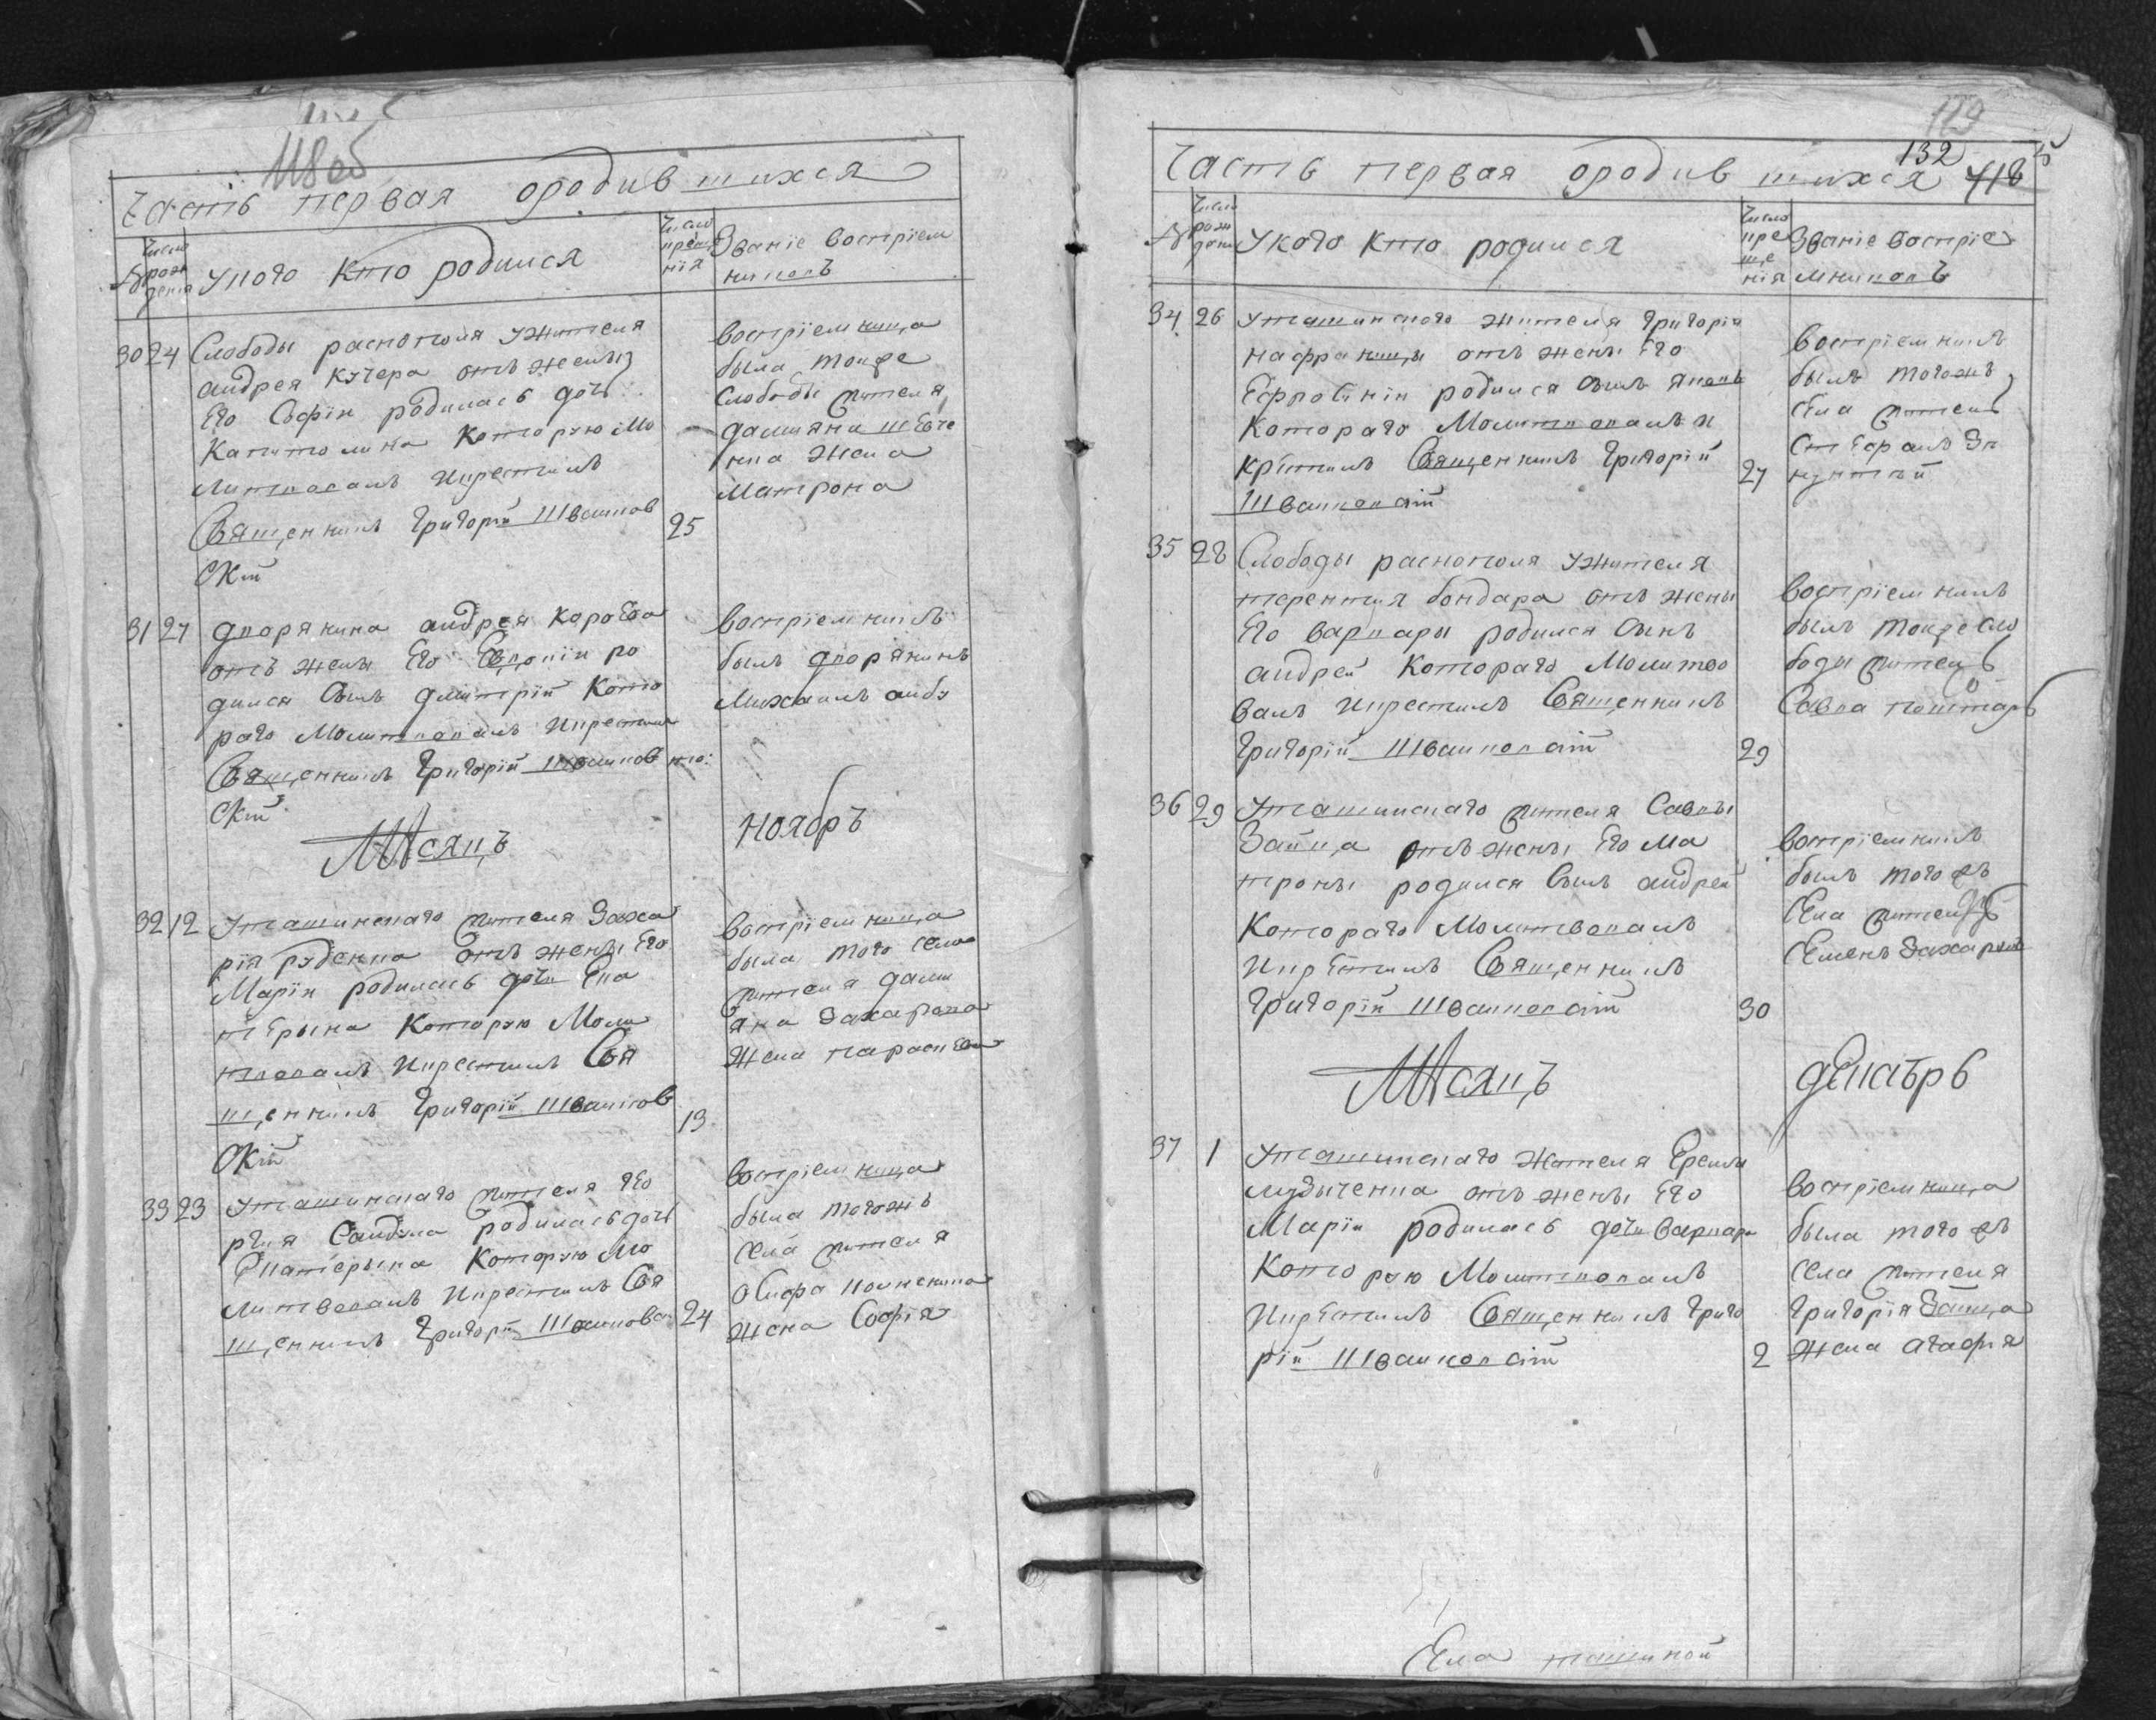 118 об
Часть первая ородившихся
№
Число рож дения
У кого кто родился
Число креще нія
Званіе воспрiем никовъ
30 24 Слободы распополя Ужителя
андрея кучера отъ жены
Его Софіи родилась дочь
Капитолина Которую Мо
литвовалъ икрестилъ
Священникъ Григорій Шваиков 25
скій
воспріемница
была тоиже
Слободы жителя
дамияна Шевче
нка жена
Матрона
31 27 дворянина андрея Короева
отъ жены Его Евдокіи ро
дился Сынъ димитрій Кото
раго Молитвовалъ икрестилъ
Священникъ Григорій Шваиков
скій
воспріемникъ
былъ дворянинъ
Михаилъ
Мѣсяцъ ноябръ
32 12 Уташинскаго жителя Заха
рія руденка отъ жены Его
Маріи родилась дочь Ека
тЕрына Которую Моли
твовалъ икрестилъ Свя
щенникъ Григорій Шваиков 13
скій
воспріемница
была того села
жителя дами
яна Захарова
жена параскева
33 23 Уташинскаго жителя
родилась дочь
Екатерына Которую Мо
литвовалъ икрестилъ Свя
щенникъ Григорій Шваиковс 24
воспріемница
была тогожъ
села жителя
жена Софія
129
132
418
Часть первая ородившихся
№
Число рож дени
У кого кто родился
Число кре ще нія
Званіе воспріе мниковъ
34 26 Уташинского жителя Григорія
отъ жены Его
Ефросиніи родился Сынъ Яковъ
Котораго Молитвовалъ и
крестилъ Священникъ Григорій 27
Шваиковскій
воспріемникъ
былъ тогожъ
села житель
Стефанъ
35 28 Слободы распополя Ужителя
терентия бондара отъ жены
Его варвары родился Сынъ
андрей Котораго Молитво
валъ икрестилъ Священникъ
Григорій Шваиковскій 29
воспріемникъ
былъ тоиже сло
боды житель
Савка
36 29 Уташинскаго жителя Саввы
Зайца отъ жены Его Ма
троны родился Сынъ андрей
Котораго Молитвовалъ
икрестилъ Священникъ
Григорій Шваиковскій 30
воспріемникъ
былъ того жъ
села житель
Семенъ
Мѣсяцъ декабръ
37 1 Уташинскаго жителя
отъ жены Его
Маріи родилась дочь варвара
Которую Молитвовалъ
икрестилъ Священникъ Григо
рій Шваиковскій 2
воспріемница
была того жъ
села жителя
Григорія Зайца
жена агафія
села